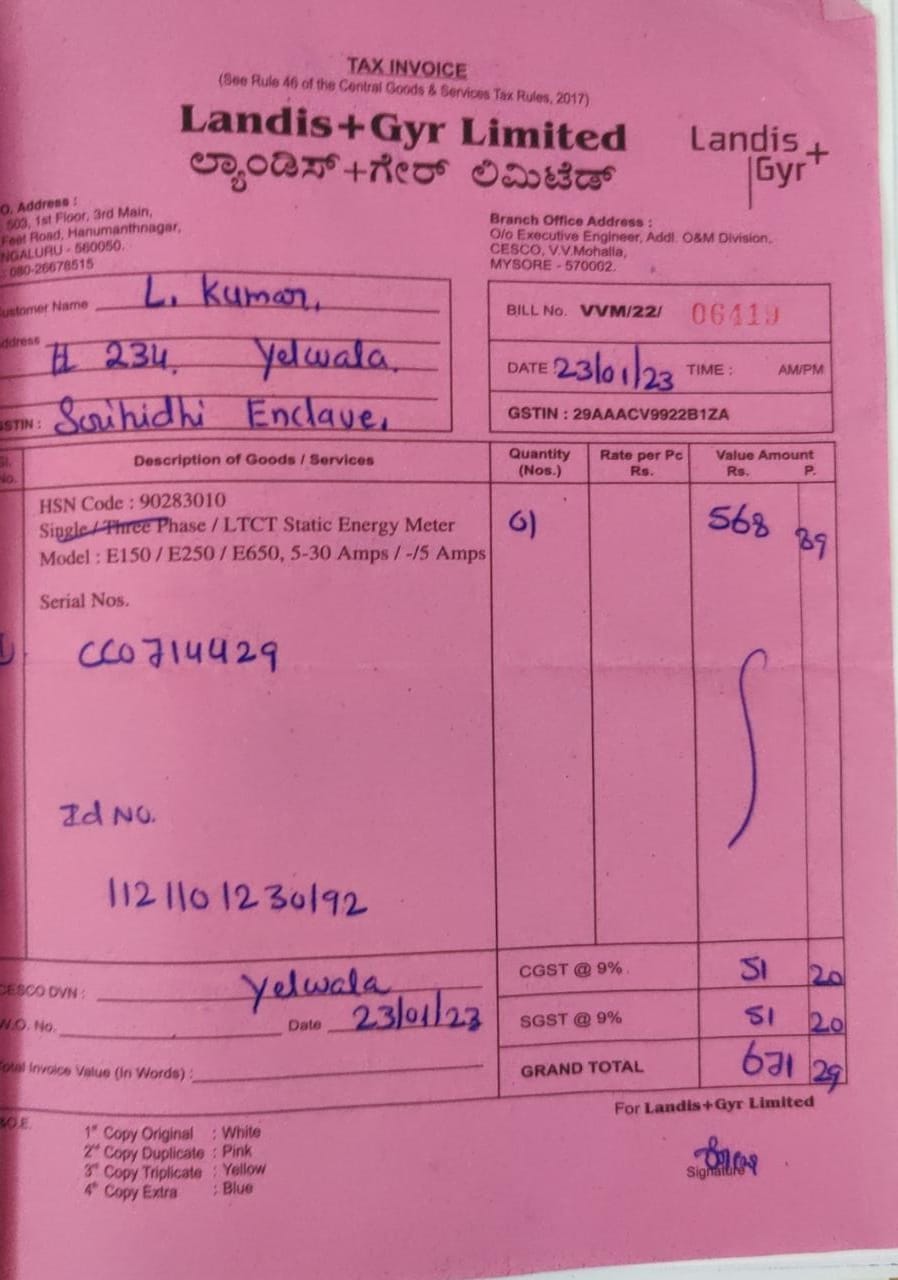 TAX INVOICE
(See Rule 46 of the Central Goods & Services Tax Rules, 2017)
Landis+Gyr Limited
ಲ್ಯಾಂಡಿಸ್+ಗೇರ್ ಲಿಮಿಟೆಡ್
Landis
Gyr+
O. Address :
503, 1st Floor, 3rd Main,
Feet Road, Hanumanthnagar,
NGALURU - 560050.
: 080-26678515
Branch Office Address :
O/o Executive Engineer, Addl. O&M Division,
CESCO, V.V.Mohalla,
MYSORE - 570002.
ustomer Name L. Kumar,
ddress # 234, Yelwala,
STIN : Srinidhi Enclave,
BILL No. VVM/22/ 06419
DATE 23/01/23 TIME : AM/PM
GSTIN : 29AAACV9922B1ZA
Sl. No. Description of Goods / Services Quantity (Nos.) Rate per Pc Rs. Value Amount Rs. P.
HSN Code : 90283010
Single / Three Phase / LTCT Static Energy Meter 01 568 89
Model : E150 / E250 / E650, 5-30 Amps / -/5 Amps
Serial Nos.
CC0714429
Id No.
1121101230192
CESCO DVN : Yelwala
W.O. No. Date 23/01/23
Total Invoice Value (In Words) :
CGST @ 9% 51 20
SGST @ 9% 51 20
GRAND TOTAL 671 29
For Landis+Gyr Limited
&O.E.
1st Copy Original : White
2nd Copy Duplicate : Pink
3rd Copy Triplicate : Yellow
4th Copy Extra : Blue
Signature